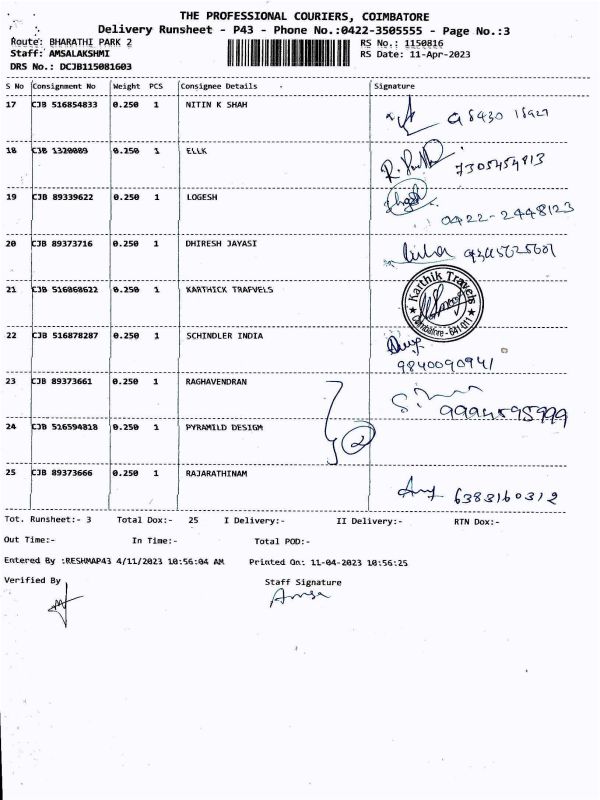 THE PROFESSIONAL COURIERS, COIMBATORE
Delivery Runsheet - P43 - Phone No.:0422-3505555 - Page No.:3
Route: BHARATHI PARK 2 RS No.: 1150816
Staff: AMSALAKSHMI RS Date: 11-Apr-2023
DRS No.: DCJB115081603
S No Consignment No Weight PCS Consignee Details Signature
17 CJB 516854833 0.250 1 NITIN K SHAH
18 CJB 1320089 0.250 1 ELLK 7305454813
19 CJB 89339622 0.250 1 LOGESH
0422-2448123
20 CJB 89373716 0.250 1 DHIRESH JAYASI
21 CJB 516868622 0.250 1 KARTHICK TRAFVELS Karthik Travels Coimbatore - 641 011
22 CJB 516878287 0.250 1 SCHINDLER INDIA
9840090941
23 CJB 89373661 0.250 1 RAGHAVENDRAN
24 CJB 516594818 0.250 1 PYRAMILD DESIGM 2
25 CJB 89373666 0.250 1 RAJARATHINAM 6383160312
Tot. Runsheet:- 3 Total Dox:- 25 I Delivery:- II Delivery:- RTN Dox:-
Out Time:- In Time:- Total POD:-
Entered By :RESHMAP43 4/11/2023 10:56:04 AM Printed On: 11-04-2023 10:56:25
Verified By Staff Signature
Amsa